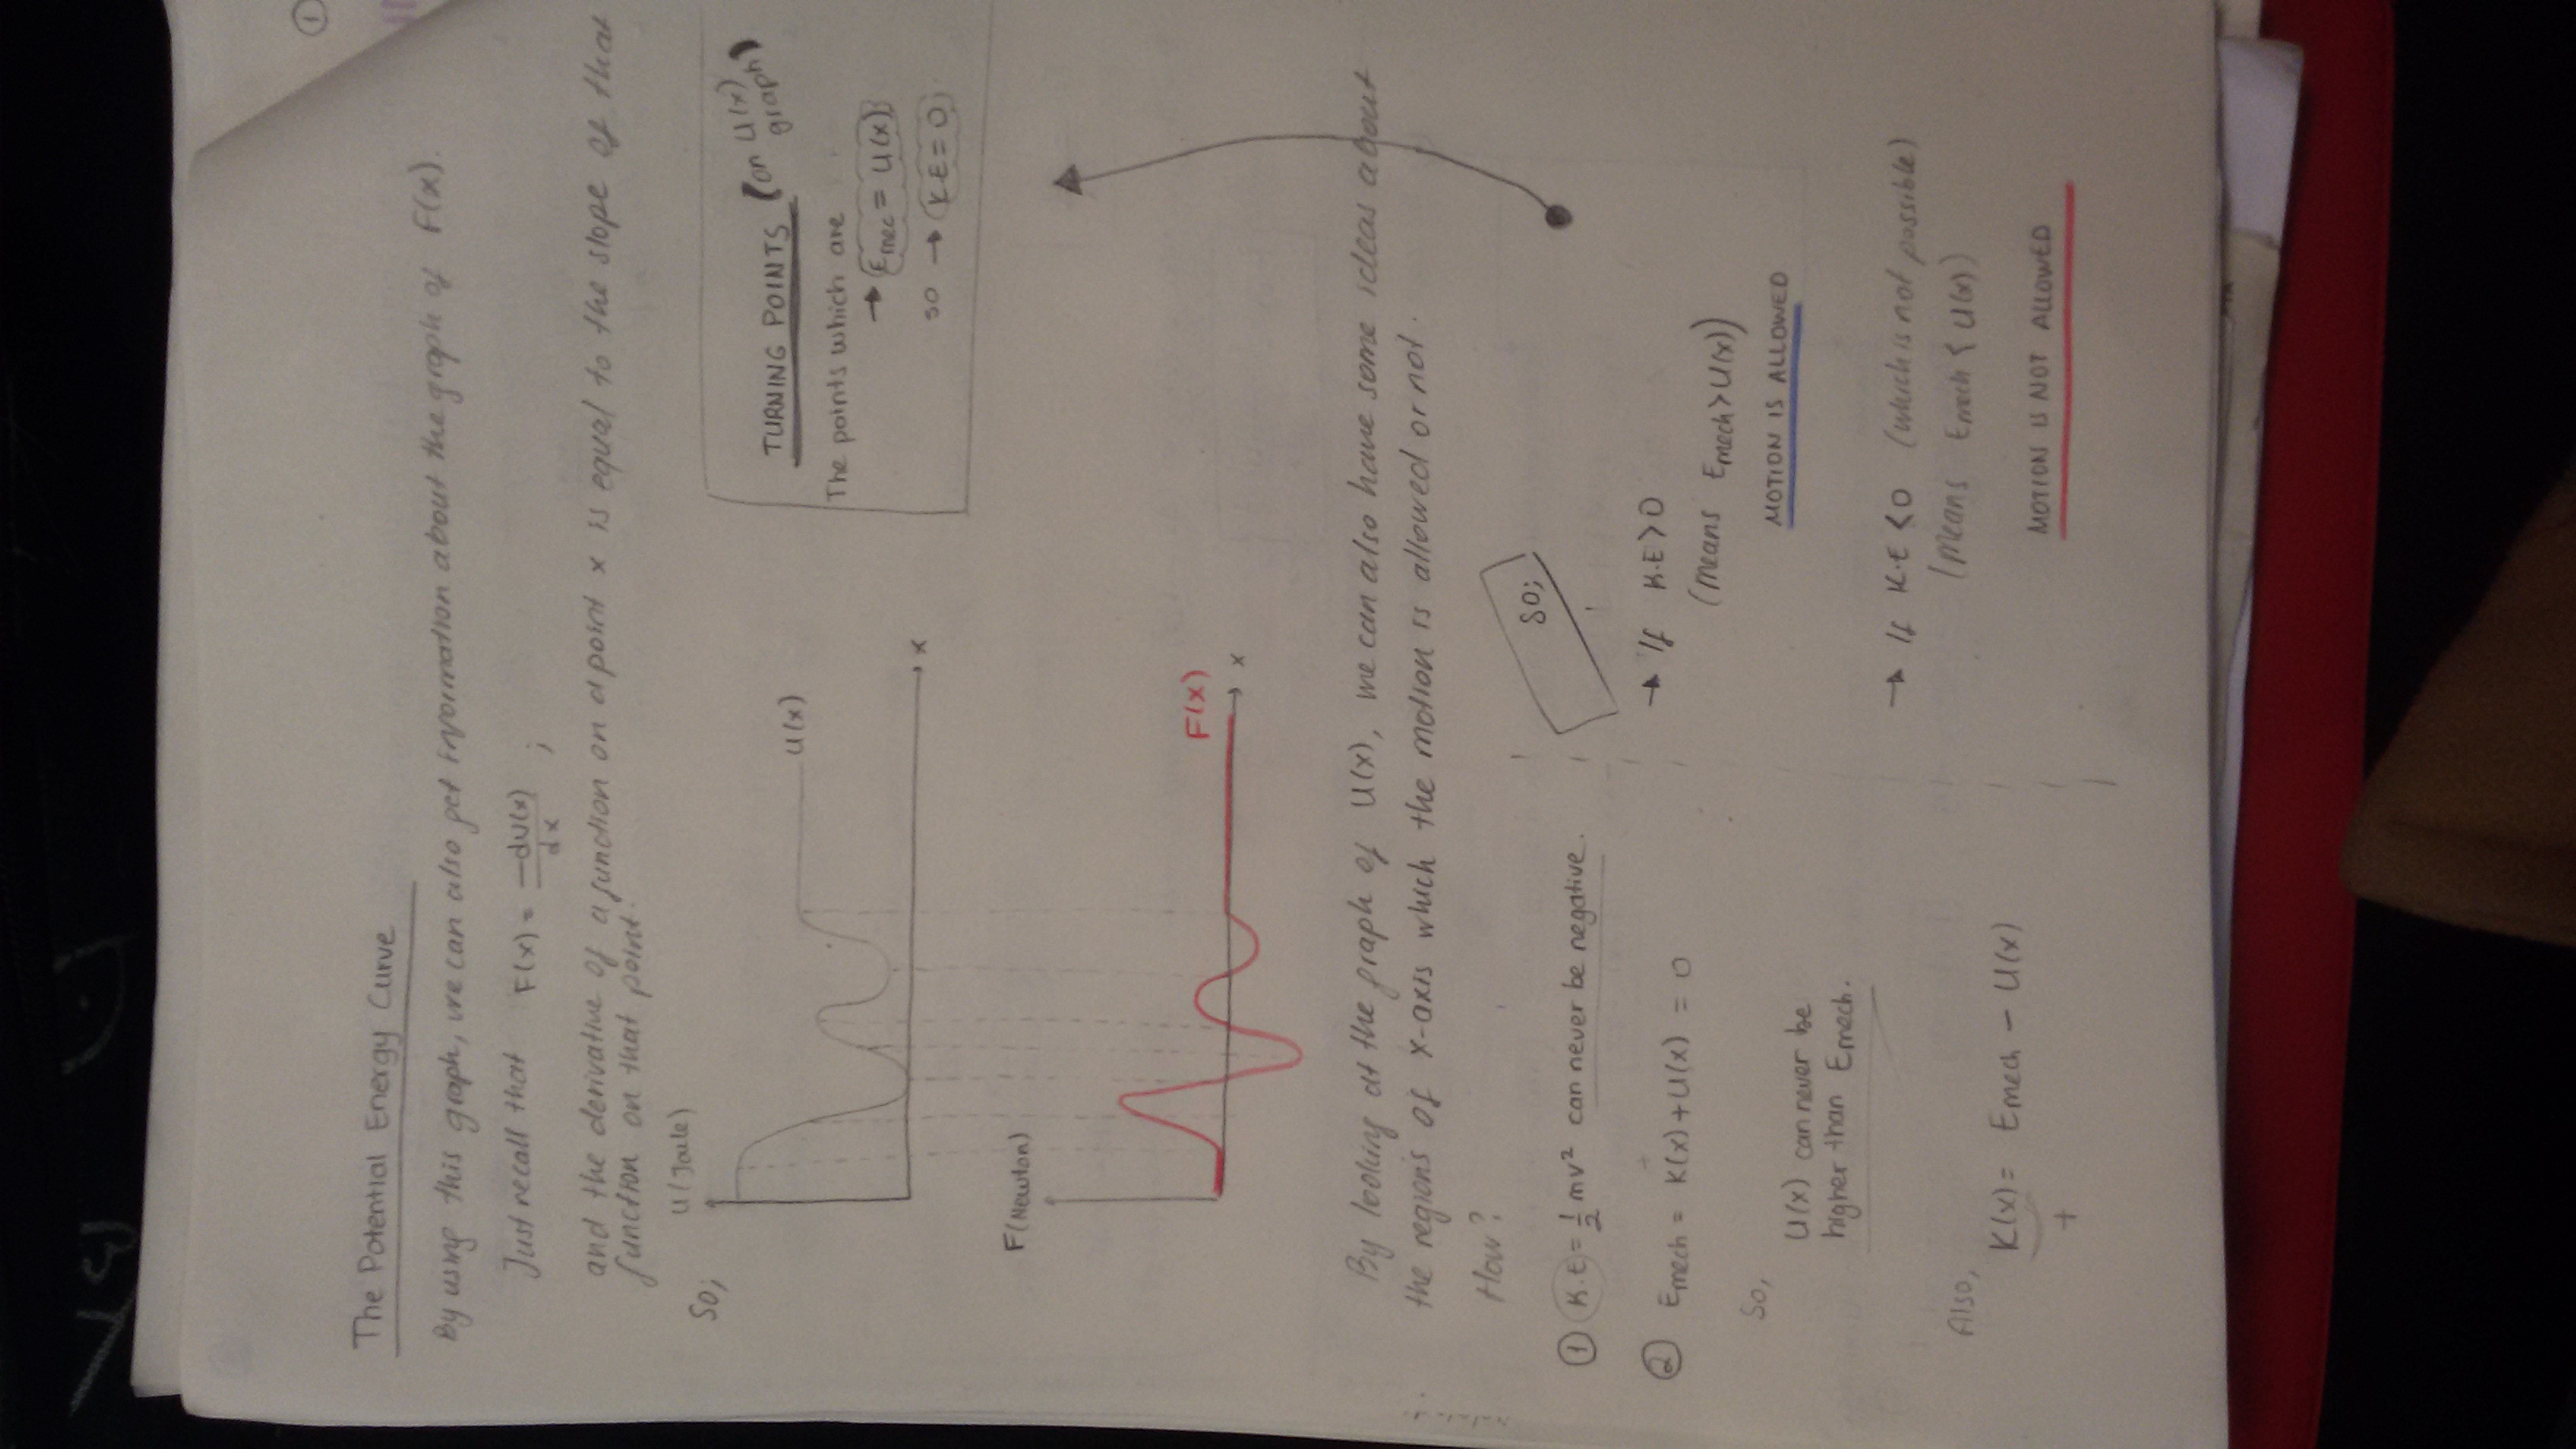 The Potential Energy Curve
By using this graph, we can also get information about the graph of F(x).
Just recall that F(x) = -dU(x)/dx ;
and the derivative of a function on a point x is equal to the slope of that
function on that point.
So;
U (Joule)
U(x)
x
TURNING POINTS (on U(x) graph)
The points which are
→ Emec = U(x)
so → KE = 0
F (Newton)
F(x)
x
By looking at the graph of U(x), we can also have some ideas about
the regions of x-axis which the motion is allowed or not.
How?
① K.E = 1/2 mv² can never be negative.
② Emech = K(x) + U(x) = 0
So,
U(x) can never be
higher than Emech.
Also,
K(x) = Emech - U(x)
+
SO;
→ If K.E > 0
(means Emech > U(x))
MOTION IS ALLOWED
→ If K.E < 0 (which is not possible)
(means Emech < U(x))
MOTION IS NOT ALLOWED
①